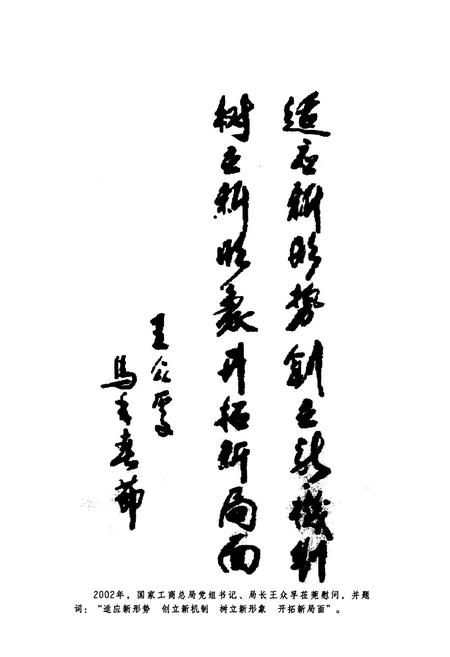 适应新形势创立新機制
树立新形象开拓新局面
王众孚
馬年春節
2002年，国家工商总局党组书记、局长王众孚莅莞慰问，并题
词：“适应新形势　创立新机制　树立新形象　开拓新局面”。